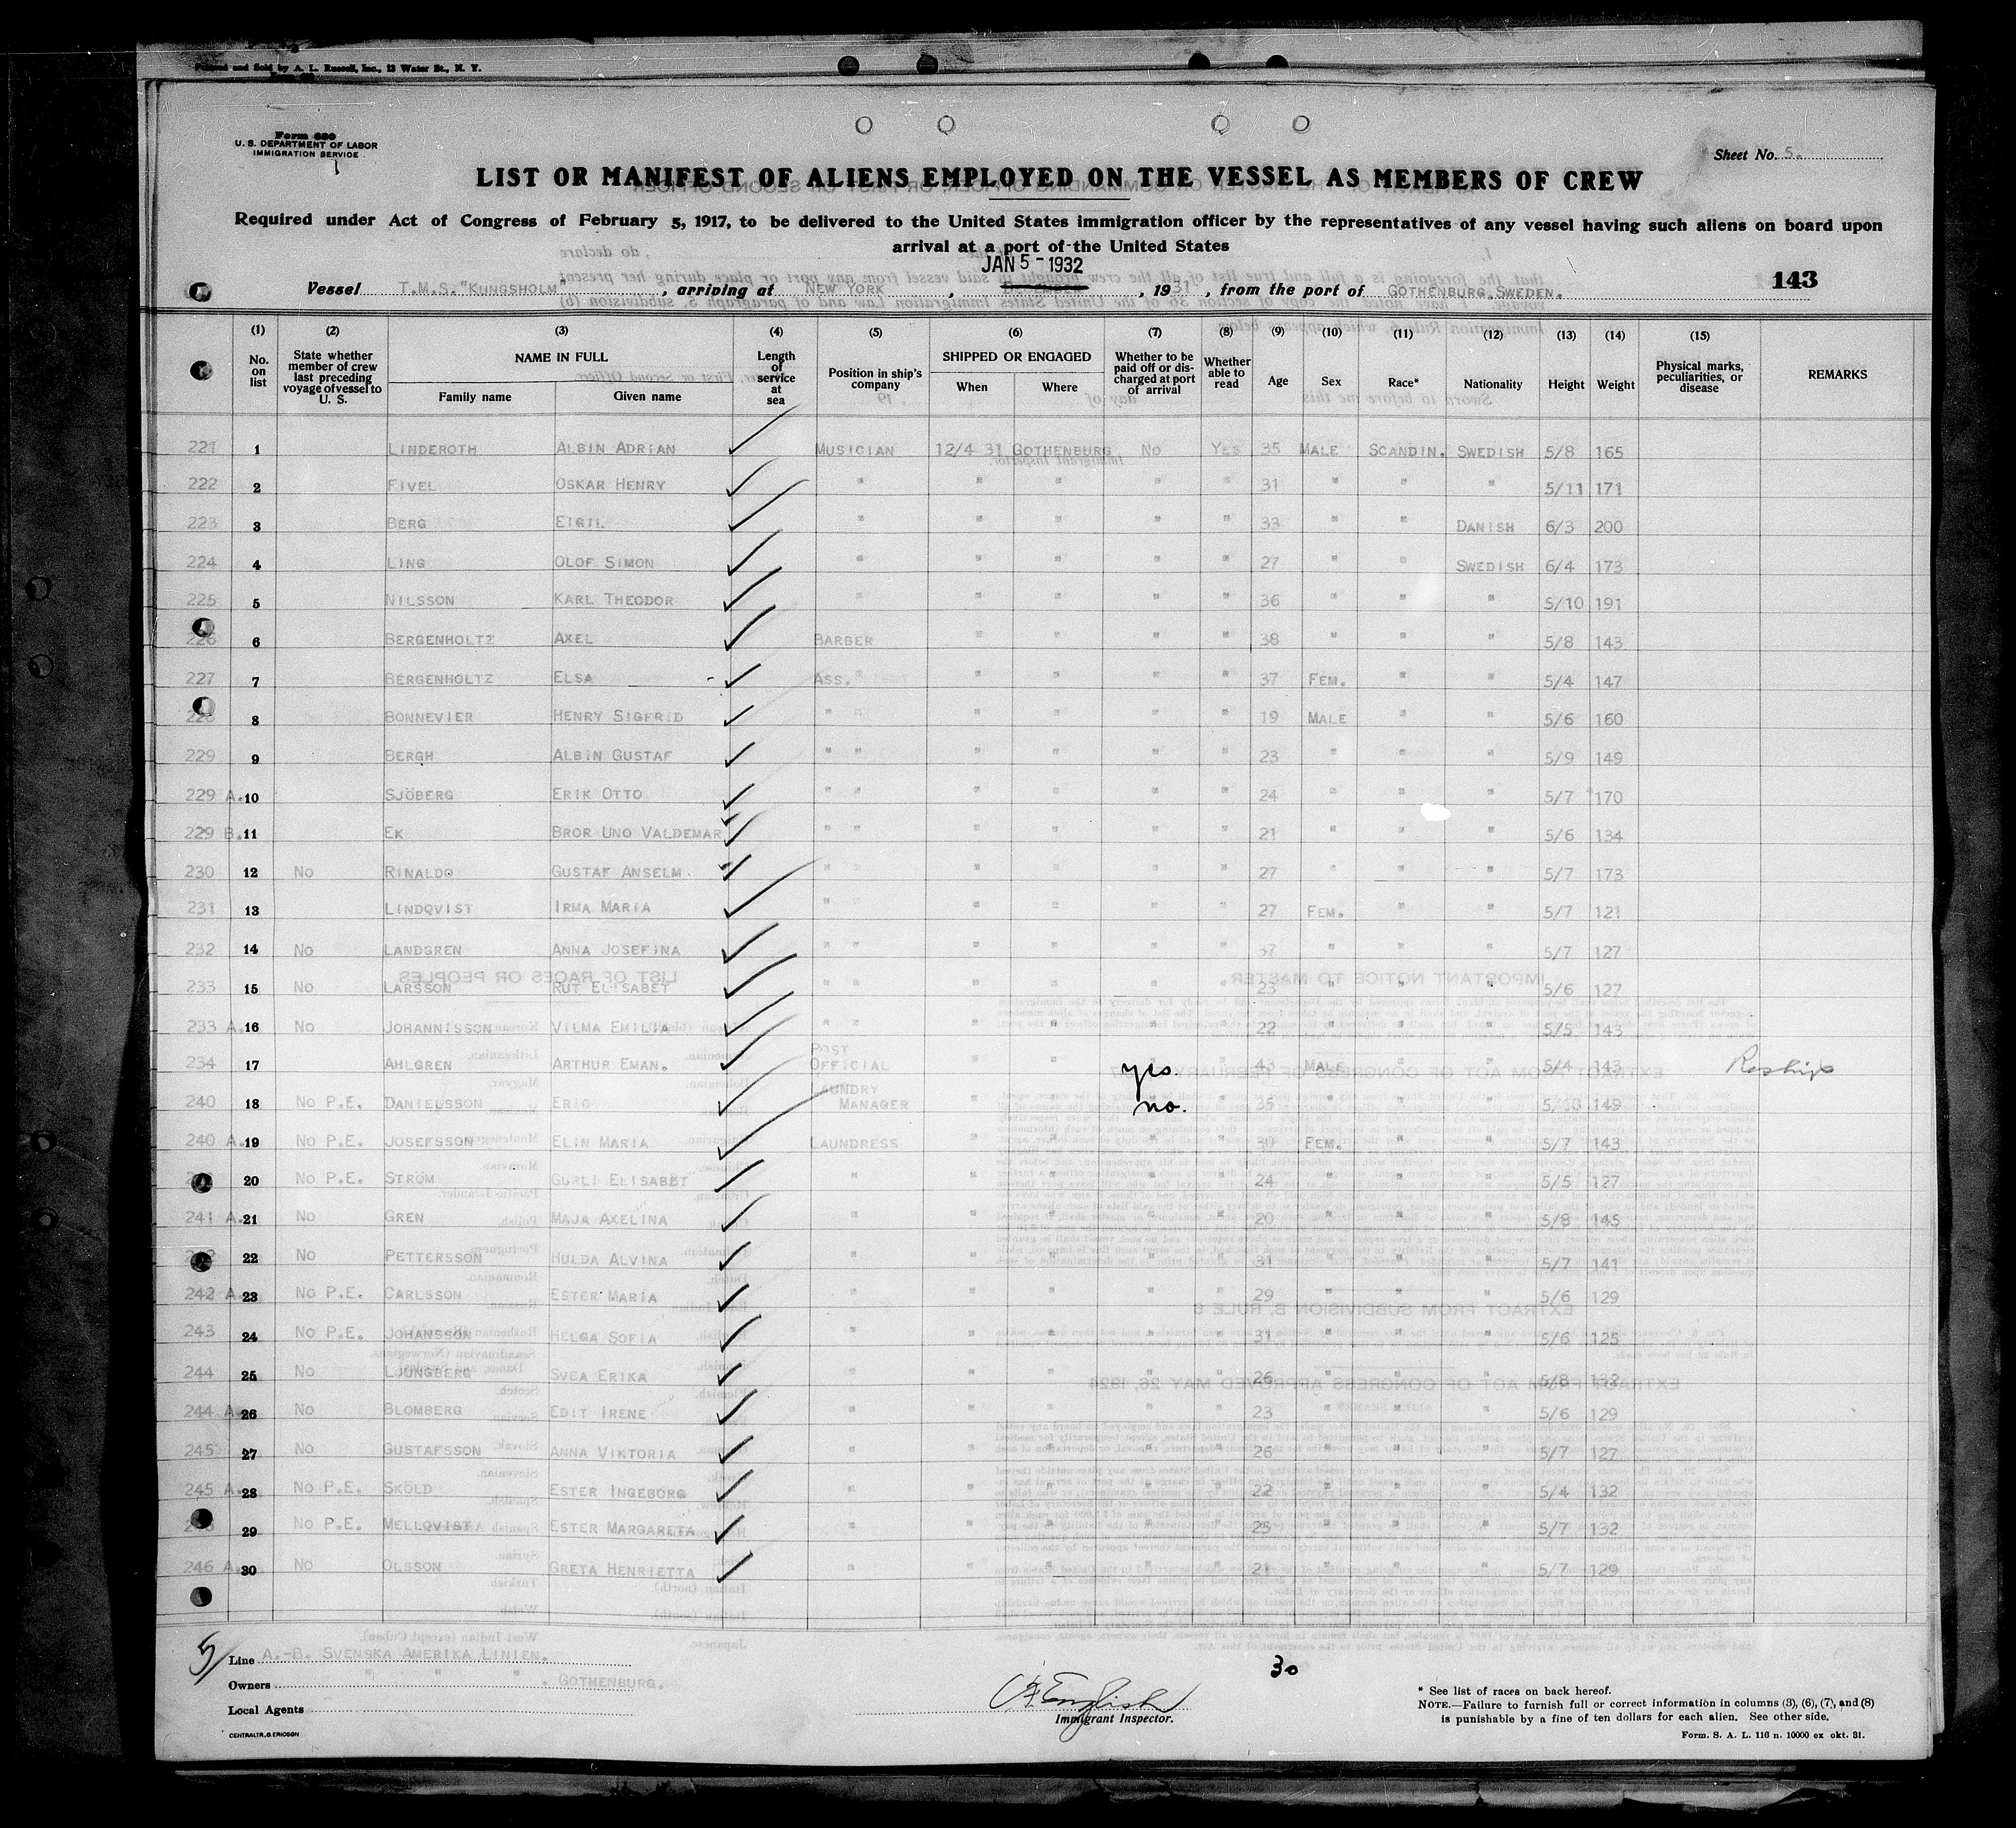 Printed and Sold by A. L. Russell, Inc., 13 Water St., N. Y.
Form 680
U. S. DEPARTMENT OF LABOR
IMMIGRATION SERVICE
Sheet No. 5.
LIST OR MANIFEST OF ALIENS EMPLOYED ON THE VESSEL AS MEMBERS OF CREW
Required under Act of Congress of February 5, 1917, to be delivered to the United States immigration officer by the representatives of any vessel having such aliens on board upon
arrival at a port of the United States
JAN 5 - 1932
Vessel T.M.S. "KUNGSHOLM", arriving at NEW YORK, , 1931, from the port of GOTHENBURG, SWEDEN. 143
(1) (2) (3) (4) (5) (6) (7) (8) (9) (10) (11) (12) (13) (14) (15)
No. on list | State whether member of crew last preceding voyage of vessel to U. S. | NAME IN FULL Family name Given name | Length of service at sea | Position in ship's company | SHIPPED OR ENGAGED When Where | Whether to be paid off or discharged at port of arrival | Whether able to read | Age | Sex | Race* | Nationality | Height | Weight | Physical marks, peculiarities, or disease | REMARKS
221 1 LINDEROTH ALBIN ADRIAN MUSICIAN 12/4 31 GOTHENBURG NO YES 35 MALE SCANDIN. SWEDISH 5/8 165
222 2 FIVEL OSKAR HENRY " " " " " 31 " " " 5/11 171
223 3 BERG EIGIL " " " " " 33 " " DANISH 6/3 200
224 4 LING OLOF SIMON " " " " " 27 " " SWEDISH 6/4 173
225 5 NILSSON KARL THEODOR " " " " " 36 " " " 5/10 191
226 6 BERGENHOLTZ AXEL BARBER " " " " 38 " " " 5/8 143
227 7 BERGENHOLTZ ELSA ASS. " " " " " 37 FEM. " " 5/4 147
228 8 BONNEVIER HENRY SIGFRID " " " " " " 19 MALE " " 5/6 160
229 9 BERGH ALBIN GUSTAF " " " " " " 23 " " " 5/9 149
229 A. 10 SJÖBERG ERIK OTTO " " " " " " 24 " " " 5/7 170
229 B. 11 EK BROR UNO VALDEMAR " " " " " " 21 " " " 5/6 134
230 12 NO RINALDO GUSTAF ANSELM " " " " " " 27 " " " 5/7 173
231 13 LINDQVIST IRMA MARIA " " " " " " 27 FEM. " " 5/7 121
232 14 NO LANDGREN ANNA JOSEFINA " " " " " " 37 " " " 5/7 127
233 15 NO LARSSON RUT ELISABET " " " " " " 23 " " " 5/6 127
233 A. 16 NO JOHANNISSON VILMA EMILIA " " " " " " 22 " " " 5/5 143
234 17 AHLGREN ARTHUR EMAN. POST OFFICIAL " " yes. " 43 MALE " " 5/4 143
240 18 NO P.E. DANIELSSON ERIC LAUNDRY MANAGER " " no. " 35 " " " 149
240 A. 19 NO P.E. JOSEFSSON ELIN MARIA LAUNDRESS " " " " 30 FEM. " " 5/7 143
20 NO P.E. STRÖM GURLI ELISABET " " " " " 24 " " " 5/5 127
241 A. 21 NO GREN MAJA AXELINA " " " " " 20 " " " 5/8 145
22 NO PETTERSSON HULDA ALVINA " " " " " 31 " " " 5/7 141
242 A. 23 NO P.E. CARLSSON ESTER MARIA " " " " " 29 " " " 5/6 129
243 24 NO P.E. JOHANSSON HELGA SOFIA " " " " " 31 " " " 5/6 125
244 25 NO LJUNGBERG SVEA ERIKA " " " " " 26 " " " 5/8 132
244 A. 26 NO BLOMBERG EDIT IRENE " " " " " 23 " " " 5/6 129
245 27 NO GUSTAFSSON ANNA VIKTORIA " " " " " 26 " " " 5/7 127
245 A. 28 NO P.E. SKÖLD ESTER INGEBORG " " " " " 22 " " " 5/4 132
29 NO P.E. MELLQVIST ESTER MARGARETA " " " " " 25 " " " 5/7 132
246 A. 30 NO OLSSON GRETA HENRIETTA " " " " " 21 " " " 5/7 129
5/
Line A.-B. SVENSKA AMERIKA LINIEN.
Owners " " " . GOTHENBURG.
Local Agents
CENTRALTR., G. ERICSON
30
English
Immigrant Inspector.
* See list of races on back hereof.
NOTE.—Failure to furnish full or correct information in columns (3), (6), (7), and (8)
is punishable by a fine of ten dollars for each alien. See other side.
Form. S. A. L. 116 n. 10000 ex okt. 31.